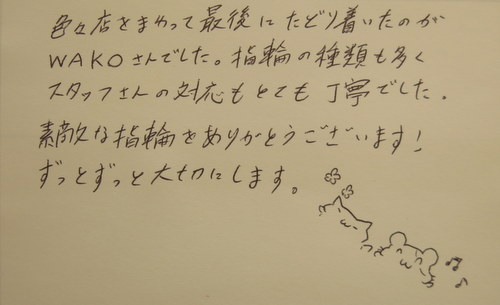 色々店をまわって最後にたどり着いたのが
WAKOさんでした。指輪の種類も多く
スタッフさんの対応もとても丁寧でした。
素敵な指輪をありがとうございます!
ずっとずっと大切にします。